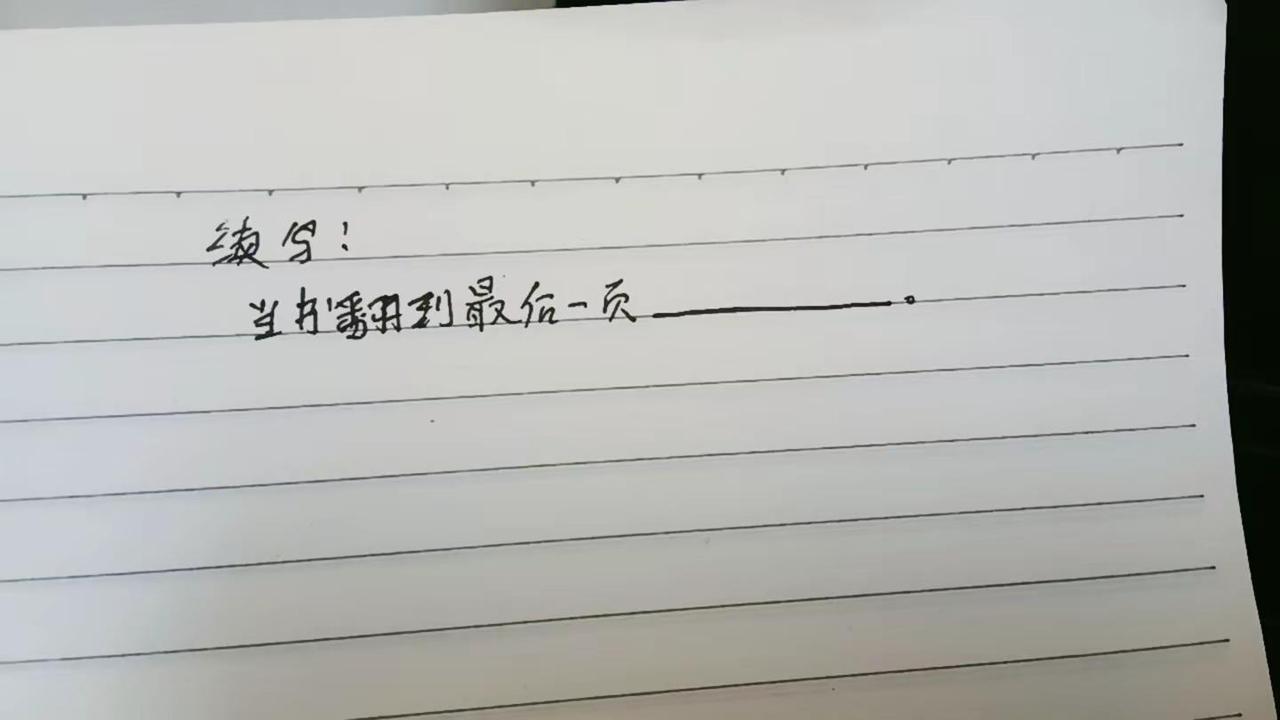 续写！
当书翻到最后一页＿＿＿＿＿＿。